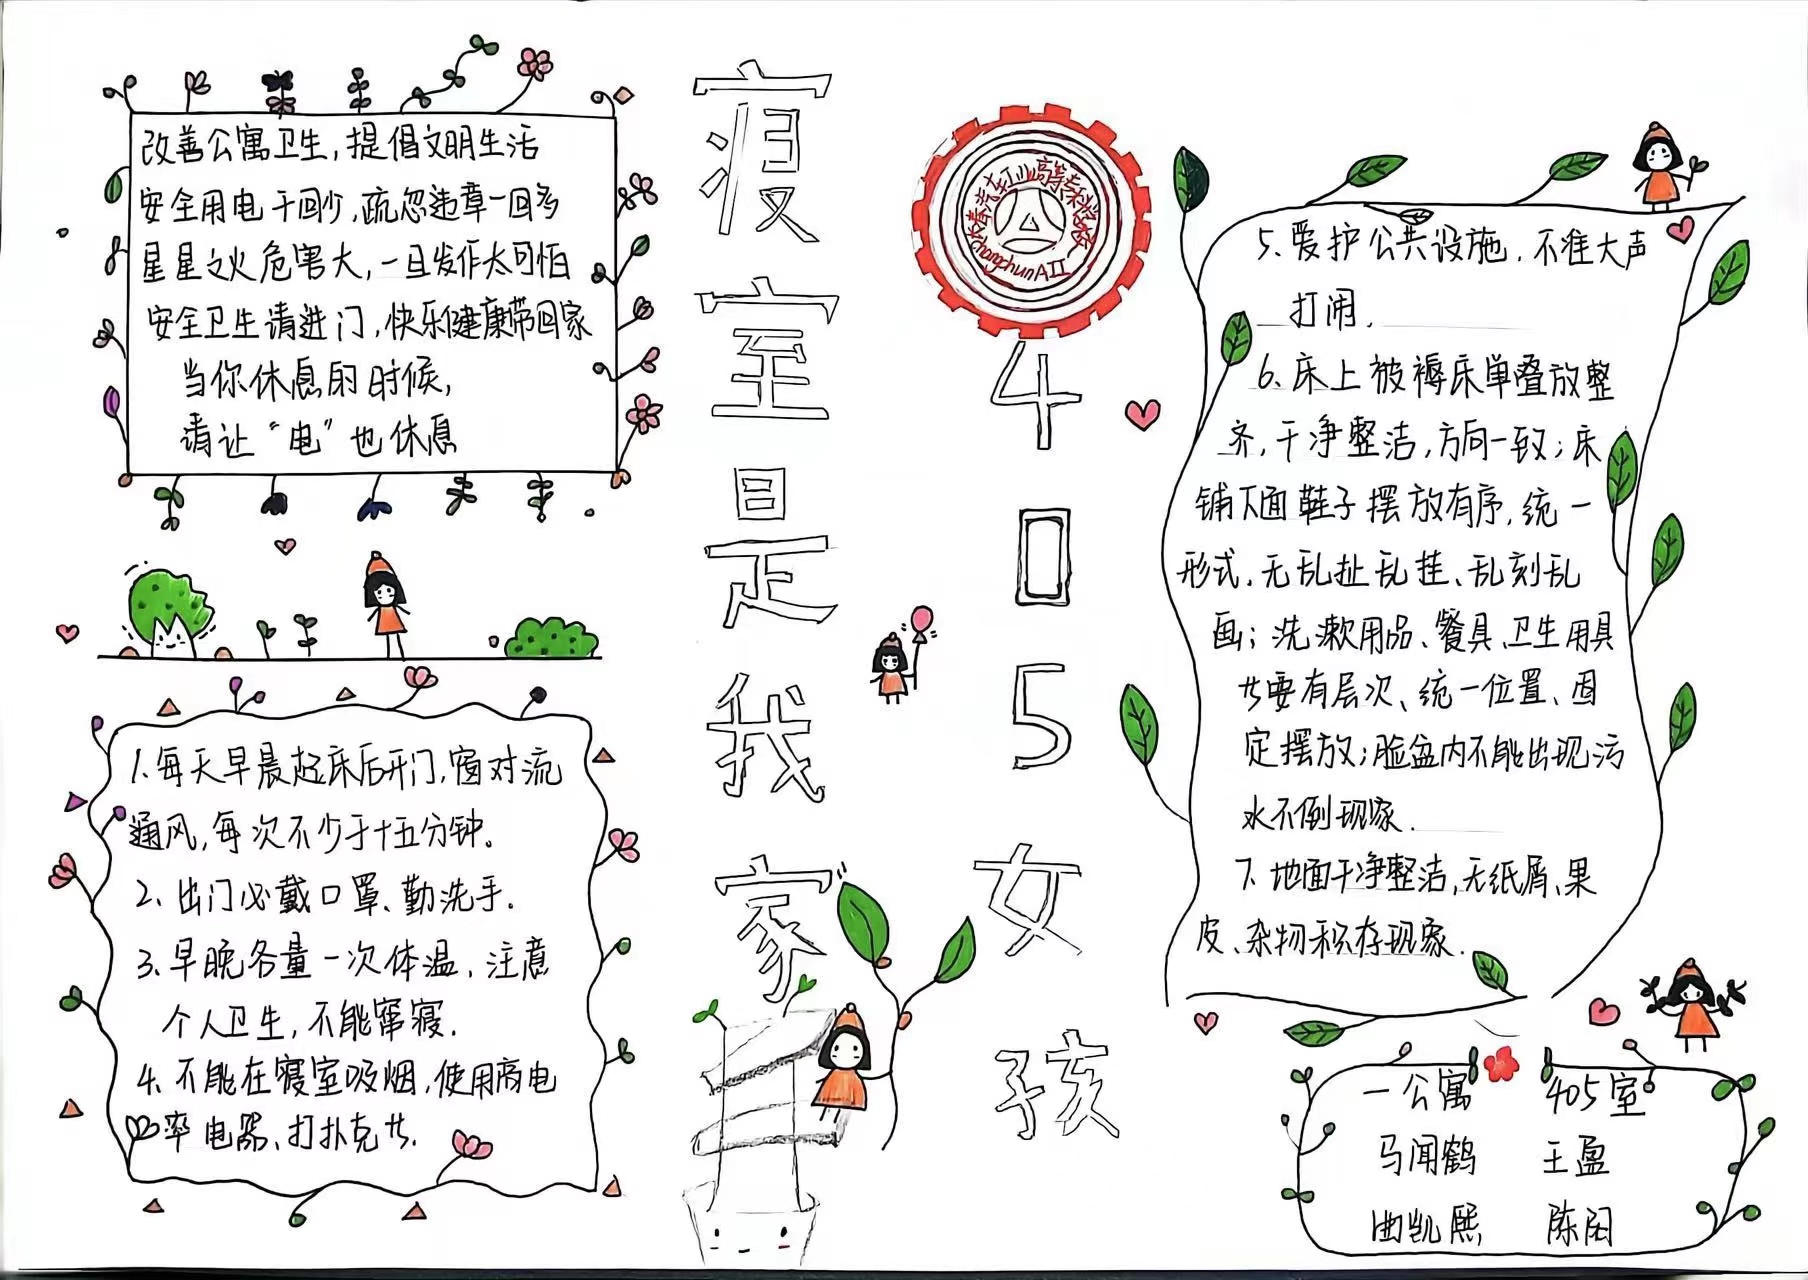 改善公寓卫生,提倡文明生活
安全用电千回少,疏忽违章一回多
星星之火危害大,一旦发作太可怕
安全卫生请进门,快乐健康带回家
当你休息的时候,
请让“电”也休息
1.每天早晨起床后开门,窗对流
通风,每次不少于十五分钟。
2.出门必戴口罩、勤洗手.
3.早晚各量一次体温,注意
个人卫生,不能窜寝.
4.不能在寝室吸烟,使用高电
率电器、打扑克等.
寝室是我家
长春汽车工业高等专科学校
Changchun AII
405女孩
5.爱护公共设施,不准大声
打闹.
6.床上被褥床单叠放整
齐,干净整洁,方向一致;床
铺下面鞋子摆放有序,统一
形式.无乱扯乱挂、乱刻乱
画;洗漱用品、餐具、卫生用具
等要有层次、统一位置、固
定摆放;脸盆内不能出现污
水不倒现象.
7.地面干净整洁,无纸屑、果
皮、杂物积存现象.
一公寓 405室
马闻鹤 王盈
曲凯熙